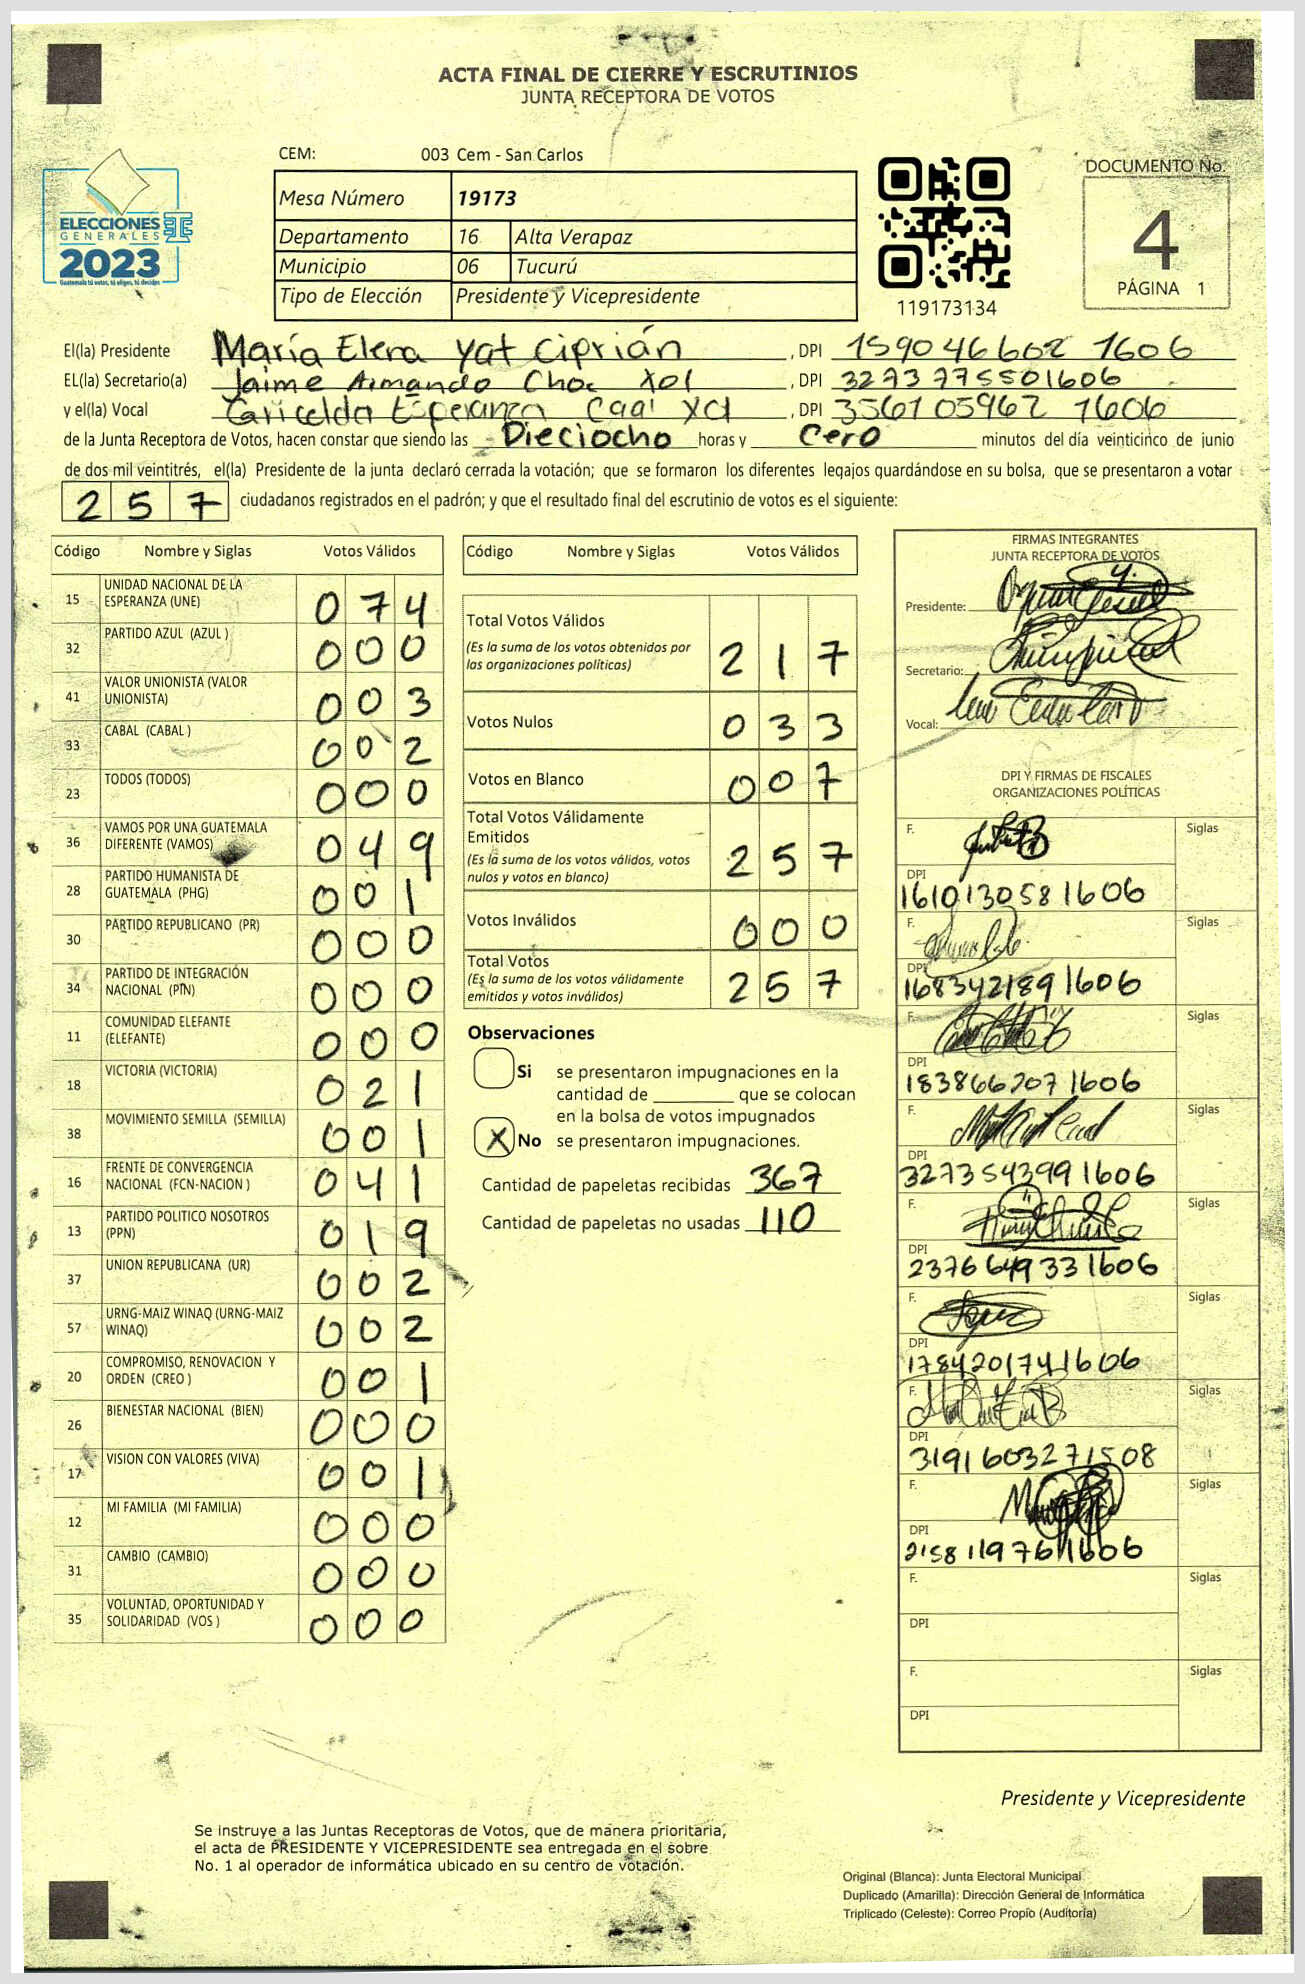 ACTA FINAL DE CIERRE Y ESCRUTINIOS
JUNTA RECEPTORA DE VOTOS
CEM: 003 Cem - San Carlos
DOCUMENTO No.
4
PÁGINA 1
ELECCIONES
GENERALES
2023
Guatemala tú votas, tú eliges, tú decides
Mesa Número 19173
Departamento 16 Alta Verapaz
Municipio 06 Tucurú
Tipo de Elección Presidente y Vicepresidente
119173134
El(la) Presidente María Elena Yat Ciprián , DPI 159046602 1606
EL(la) Secretario(a) Jaime Armando Choc Xol , DPI 3273 775501606
y el(la) Vocal Esperanza Caal , DPI 356105962 1606
de la Junta Receptora de Votos, hacen constar que siendo las Dieciocho horas y Cero minutos del día veinticinco de junio
de dos mil veintitrés, el(la) Presidente de la junta declaró cerrada la votación; que se formaron los diferentes legajos guardándose en su bolsa, que se presentaron a votar
257 ciudadanos registrados en el padrón; y que el resultado final del escrutinio de votos es el siguiente:
Código Nombre y Siglas Votos Válidos
15 UNIDAD NACIONAL DE LA ESPERANZA (UNE) 074
32 PARTIDO AZUL (AZUL ) 000
41 VALOR UNIONISTA (VALOR UNIONISTA) 003
33 CABAL (CABAL ) 002
23 TODOS (TODOS) 000
36 VAMOS POR UNA GUATEMALA DIFERENTE (VAMOS) 049
28 PARTIDO HUMANISTA DE GUATEMALA (PHG) 001
30 PARTIDO REPUBLICANO (PR) 000
34 PARTIDO DE INTEGRACIÓN NACIONAL (PIN) 000
11 COMUNIDAD ELEFANTE (ELEFANTE) 000
18 VICTORIA (VICTORIA) 021
38 MOVIMIENTO SEMILLA (SEMILLA) 001
16 FRENTE DE CONVERGENCIA NACIONAL (FCN-NACION ) 041
13 PARTIDO POLITICO NOSOTROS (PPN) 019
37 UNION REPUBLICANA (UR) 002
57 URNG-MAIZ WINAQ (URNG-MAIZ WINAQ) 002
20 COMPROMISO, RENOVACION Y ORDEN (CREO ) 001
26 BIENESTAR NACIONAL (BIEN) 000
17 VISION CON VALORES (VIVA) 001
12 MI FAMILIA (MI FAMILIA) 000
31 CAMBIO (CAMBIO) 000
35 VOLUNTAD, OPORTUNIDAD Y SOLIDARIDAD (VOS ) 000
Código Nombre y Siglas Votos Válidos
Total Votos Válidos 217
(Es la suma de los votos obtenidos por
las organizaciones políticas)
Votos Nulos 033
Votos en Blanco 007
Total Votos Válidamente
Emitidos 257
(Es la suma de los votos válidos, votos
nulos y votos en blanco)
Votos Inválidos 000
Total Votos 257
(Es la suma de los votos válidamente
emitidos y votos inválidos)
Observaciones
Si se presentaron impugnaciones en la
cantidad de ________ que se colocan
en la bolsa de votos impugnados
X No se presentaron impugnaciones.
Cantidad de papeletas recibidas 367
Cantidad de papeletas no usadas 110
FIRMAS INTEGRANTES
JUNTA RECEPTORA DE VOTOS
Presidente:
Secretario:
Vocal:
DPI Y FIRMAS DE FISCALES
ORGANIZACIONES POLÍTICAS
F. Siglas
DPI
1610130581606
F. Siglas
DPI
1683421891606
F. Siglas
DPI
1838662071606
F. Siglas
DPI
3273543991606
F. Siglas
DPI
2376649331606
F. Siglas
DPI
1784201741606
F. Siglas
DPI
3191603271508
F. Siglas
DPI
2158119761606
F. Siglas
DPI
F. Siglas
DPI
Presidente y Vicepresidente
Se instruye a las Juntas Receptoras de Votos, que de manera prioritaria,
el acta de PRESIDENTE Y VICEPRESIDENTE sea entregada en el sobre
No. 1 al operador de informática ubicado en su centro de votación.
Original (Blanca): Junta Electoral Municipal
Duplicado (Amarilla): Dirección General de Informática
Triplicado (Celeste): Correo Propio (Auditoría)